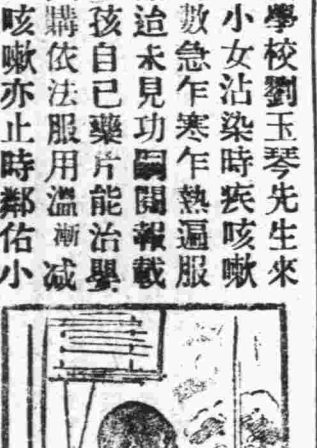 學校劉玉琴先生來
小女沾染時疾咳嗽
數急乍寒乍熱遍服
迨未見功嗣閱報載
孩自己藥片能治嬰
購依法服用溫漸减
咳嗽亦止時鄰佑小